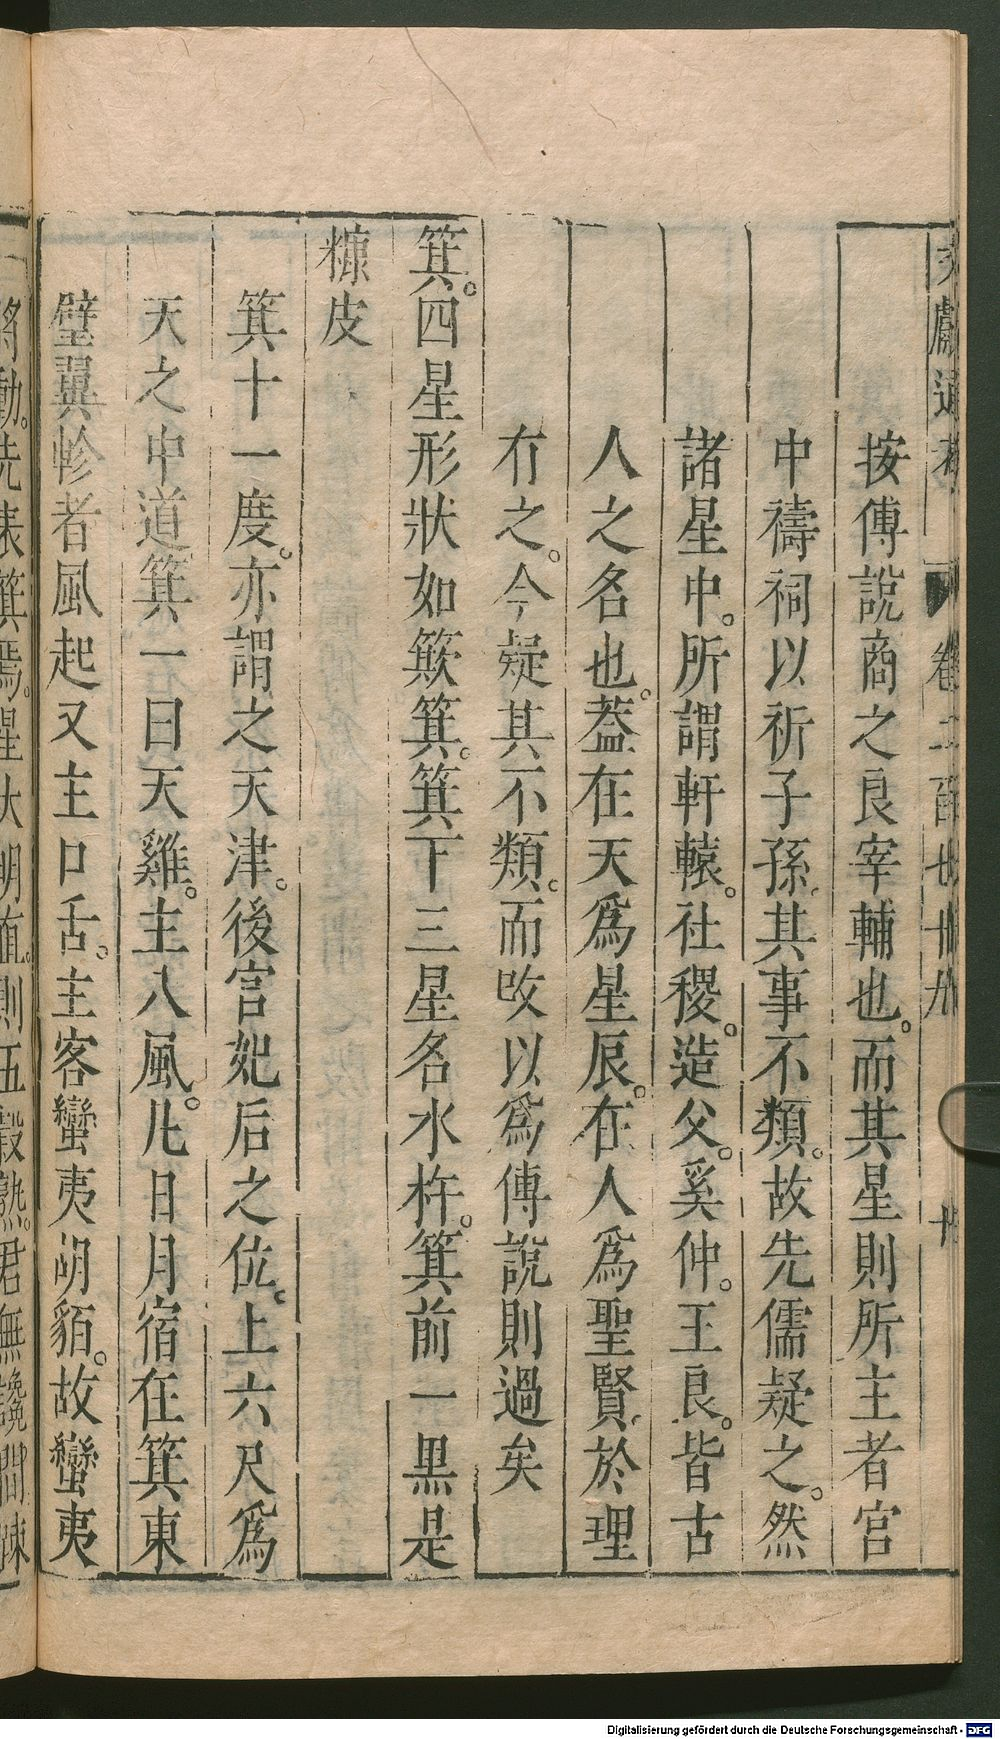 按傅說商之良宰輔也。而其星則所主者宮
中禱祠以祈子孫。其事不類。故先儒疑之。然
諸星中。所謂軒轅。社稷。造父。奚仲。王良。皆古
人之名也。葢在天爲星辰。在人爲聖賢。於理
冇之。今疑其不類。而攺以爲傅說則過矣
箕。四星形狀如簸箕。箕下三星名水杵。箕前一黒是
糠皮
箕十一度。亦謂之天津。後宮妃后之位。上六尺爲
天之中道箕一曰天雞。主八風。凡日月宿在箕東
壁翼軫者風起又主口舌。主客蠻夷胡貉。故蠻夷
將動。先表箕焉。星大明直。則五穀熟。君無讒間疎
Digitalisierung gefördert durch die Deutsche Forschungsgemeinschaft - DFG